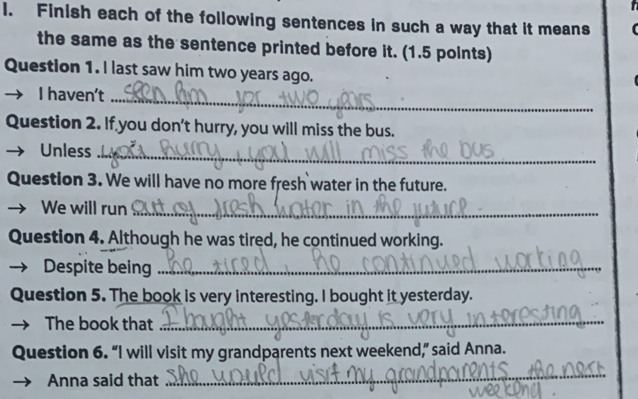 I. Finish each of the following sentences in such a way that it means
the same as the sentence printed before it. (1.5 points)
Question 1. I last saw him two years ago.
→ I haven't seen him for two years
Question 2. If you don't hurry, you will miss the bus.
→ Unless you hurry, you will miss the bus
Question 3. We will have no more fresh water in the future.
→ We will run out of fresh water in the future.
Question 4. Although he was tired, he continued working.
→ Despite being he tired, he continued working
Question 5. The book is very interesting. I bought it yesterday.
→ The book that I bought yesterday is very interesting
Question 6. "I will visit my grandparents next weekend," said Anna.
→ Anna said that she would visit my grandparents the next
weekend.